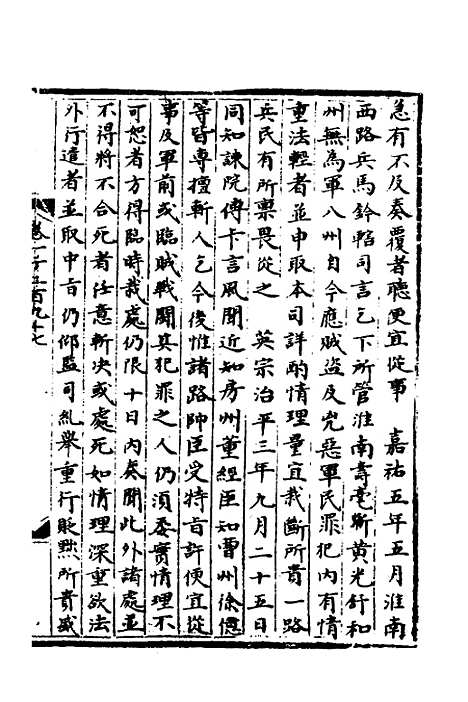 急有不及奏覆者聽便宜從事　嘉祐五年五月淮南
西路兵馬鈐轄司言乞下所管淮南壽亳蘄黃光舒和
州無為軍八州自今應賊盜及兇惡軍民罪犯內有情
重法輕者並申取本司詳酌情理量宜裁斷所貴一路
兵民有所稟畏從之　英宗治平三年九月二十五日
同知諫院傅卞言風聞近知房州董經臣知曹州徐億
等皆專擅斬人乞今後惟諸路帥臣受特旨許便宜從
事及軍前或臨賊戰鬪其犯罪之人仍須委實情理不
可恕者方得臨時裁處仍限十日內奏聞此外諸處並
不得將不合死者任意斬決或處死如情理深重欲法
外行遣者並取中旨仍仰監司糺舉重行貶黜所貴威
卷一千五百九十七